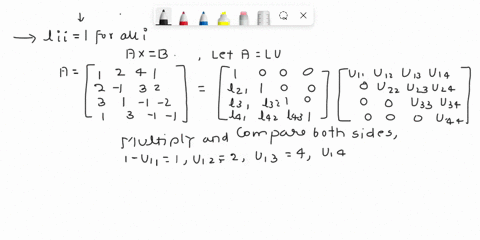 → lii = 1 for all i
AX = B , Let A = LU
A = [1 2 4 1; 2 -1 3 2; 3 1 -1 -2; 1 3 -1 -1] = [1 0 0 0; l21 1 0 0; l31 l32 1 0; l41 l42 l43 1] [U11 U12 U13 U14; 0 U22 U23 U24; 0 0 U33 U34; 0 0 0 U44]
Multiply and Compare both sides,
1- U11 = 1, U12 = 2, U13 = 4, U14